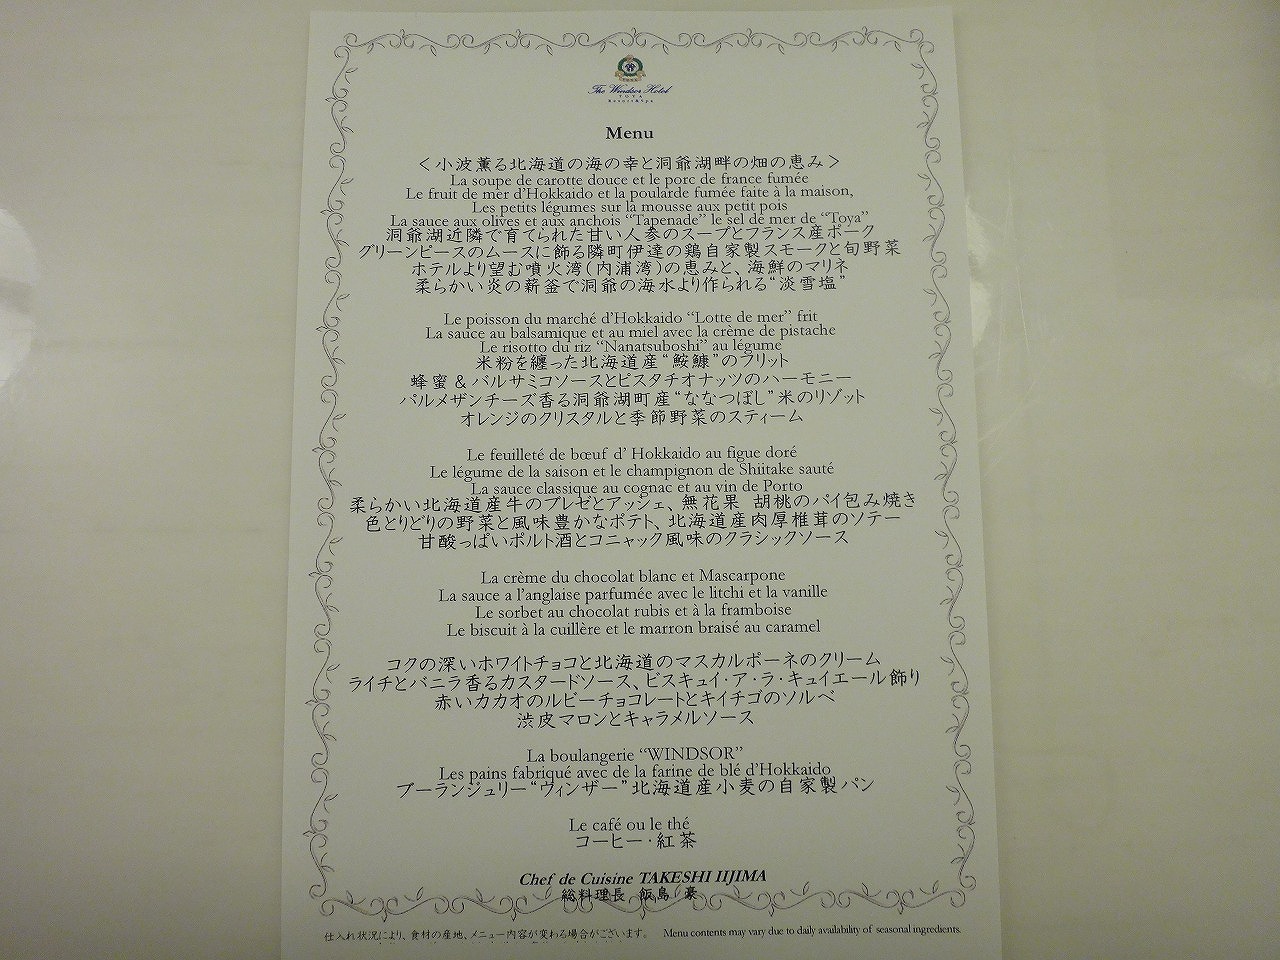 The Windsor Hotel
TOYA
Resort & Spa
Menu
＜小波薫る北海道の海の幸と洞爺湖畔の畑の恵み＞
La soupe de carotte douce et le porc de france fumée
Le fruit de mer d'Hokkaido et la poularde fumée faite à la maison,
Les petits légumes sur la mousse aux petit pois
La sauce aux olives et aux anchois “Tapenade” le sel de mer de “Toya”
洞爺湖近隣で育てられた甘い人参のスープとフランス産ポーク
グリーンピースのムースに飾る隣町伊達の鶏自家製スモークと旬野菜
ホテルより望む噴火湾（内浦湾）の恵みと、海鮮のマリネ
柔らかい炎の薪釜で洞爺の海水より作られる“淡雪塩”
Le poisson du marché d'Hokkaido “Lotte de mer” frit
La sauce au balsamique et au miel avec la crème de pistache
Le risotto du riz “Nanatsuboshi” au légume
米粉を纏った北海道産“鮟鱇”のフリット
蜂蜜＆バルサミコソースとピスタチオナッツのハーモニー
パルメザンチーズ香る洞爺湖町産“ななつぼし”米のリゾット
オレンジのクリスタルと季節野菜のスティーム
Le feuilleté de bœuf d' Hokkaido au figue doré
Le légume de la saison et le champignon de Shiitake sauté
La sauce classique au cognac et au vin de Porto
柔らかい北海道産牛のブレゼとアッシェ、無花果 胡桃のパイ包み焼き
色とりどりの野菜と風味豊かなポテト、北海道産肉厚椎茸のソテー
甘酸っぱいポルト酒とコニャック風味のクラシックソース
La crème du chocolat blanc et Mascarpone
La sauce a l'anglaise parfumée avec le litchi et la vanille
Le sorbet au chocolat rubis et à la framboise
Le biscuit à la cuillère et le marron braisé au caramel
コクの深いホワイトチョコと北海道のマスカルポーネのクリーム
ライチとバニラ香るカスタードソース、ビスキュイ・ア・ラ・キュイエール飾り
赤いカカオのルビーチョコレートとキイチゴのソルベ
渋皮マロンとキャラメルソース
La boulangerie “WINDSOR”
Les pains fabriqué avec de la farine de blé d'Hokkaido
ブーランジュリー“ウィンザー”北海道産小麦の自家製パン
Le café ou le thé
コーヒー・紅茶
Chef de Cuisine TAKESHI IIJIMA
総料理長 飯島 豪
仕入れ状況により、食材の産地、メニュー内容が変わる場合がございます。 Menu contents may vary due to daily availability of seasonal ingredients.